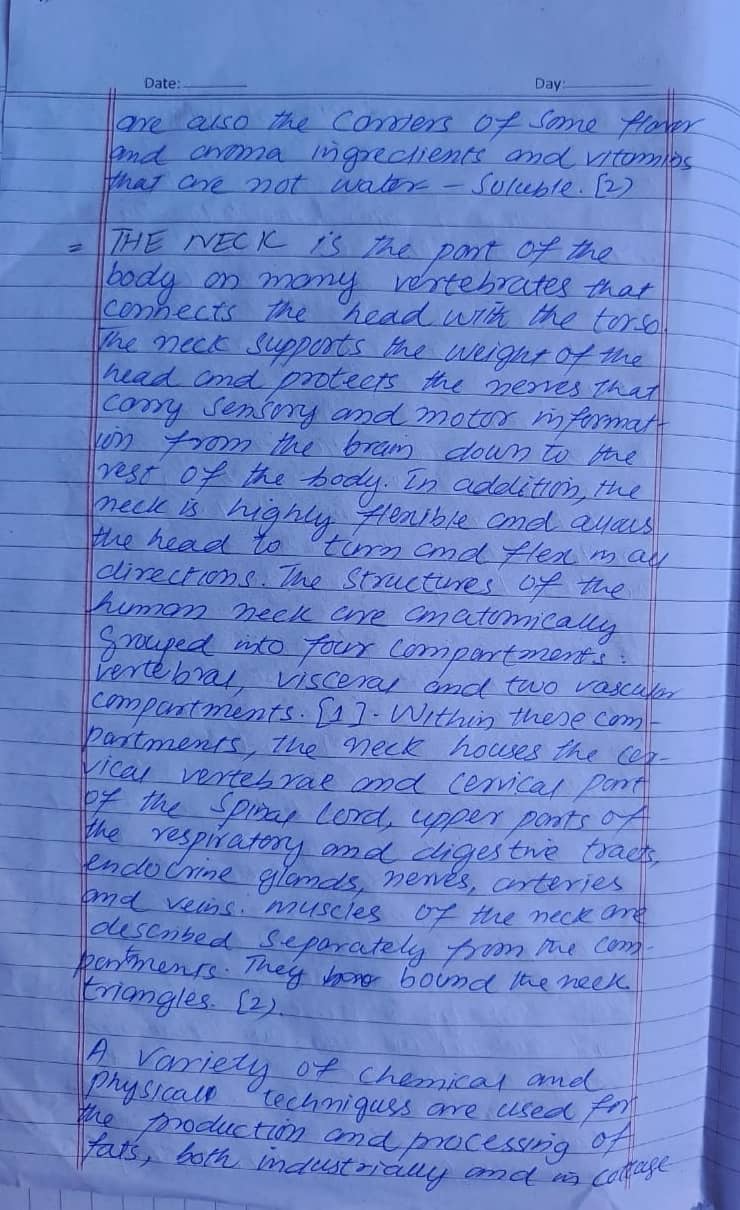 Date:
Day:
are also the carriers of some flavor
and aroma ingredients and vitamins
that are not water - Soluble. [2)
= THE NECK is the part of the
body on many vertebrates that
connects the head with the torso.
The neck supports the weight of the
head and protects the nerves that
carry sensory and motor informat
ion from the brain down to the
rest of the body. In addition, the
neck is highly flexible and allows
the head to turn and flex in all
directions. The Structures of the
human neck are anatomically
grouped into four compartments:
vertebral, visceral and two vascular
compartments. [1]. Within these com-
partments, the neck houses the cer-
vical vertebrae and cervical part
of the spinal cord, upper parts of
the respiratory and digestive tracts,
endocrine glands, nerves, arteries
and veins. muscles of the neck are
described separately from the com-
partments. They bound the neck
triangles. [2).
A variety of chemical and
physical techniques are used for
the production and processing of
fats, both industrially and in cottage